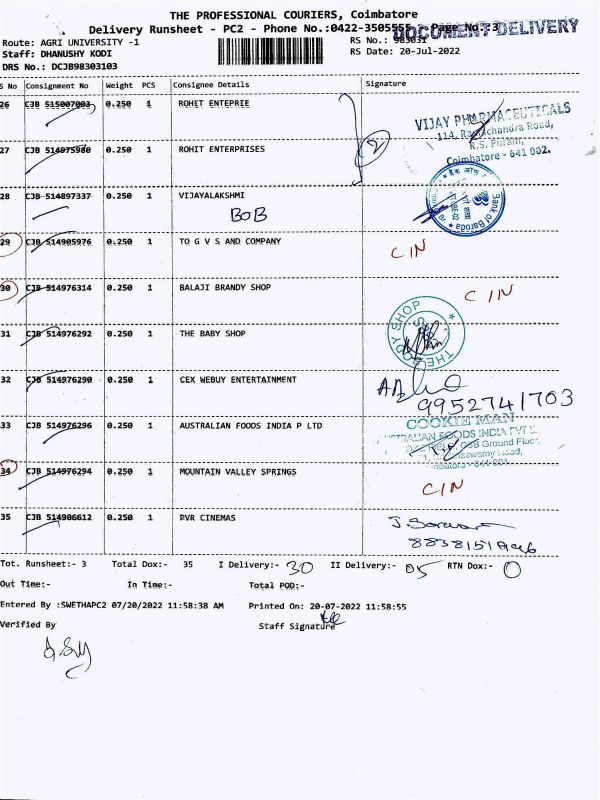 THE PROFESSIONAL COURIERS, Coimbatore
Delivery Runsheet - PC2 - Phone No.:0422-3505555 Page No.:3
DOCUMENT DELIVERY
Route: AGRI UNIVERSITY -1
RS No.: 983031
Staff: DHANUSHY KODI
RS Date: 20-Jul-2022
DRS No.: DCJB98303103
S No Consignment No Weight PCS Consignee Details Signature
26 CJB 515007003 0.250 1 ROHIT ENTEPRIE
VIJAY PHARMACEUTICALS
114, Ramachandra Road,
R.S. Puram,
Coimbatore - 641 002.
27 CJB 514975980 0.250 1 ROHIT ENTERPRISES
2
28 CJB 514897337 0.250 1 VIJAYALAKSHMI
BOB
Bank of Baroda
29 CJB 514905976 0.250 1 TO G V S AND COMPANY
CIN
30 CJB 514976314 0.250 1 BALAJI BRANDY SHOP
CIN
31 CJB 514976292 0.250 1 THE BABY SHOP
THE BODY SHOP
32 CJB 514976290 0.250 1 CEX WEBUY ENTERTAINMENT
9952741703
33 CJB 514976296 0.250 1 AUSTRALIAN FOODS INDIA P LTD
COOKIE MAN
AUSTRALIAN FOODS INDIA PVT
Ground Floor,
34 CJB 514976294 0.250 1 MOUNTAIN VALLEY SPRINGS
CIN
35 CJB 514906612 0.250 1 PVR CINEMAS
Tot. Runsheet:- 3 Total Dox:- 35 I Delivery:- 30 II Delivery:- 05 RTN Dox:- 0
Out Time:- In Time:- Total POD:-
Entered By :SWETHAPC2 07/20/2022 11:58:38 AM Printed On: 20-07-2022 11:58:55
Verified By Staff Signature